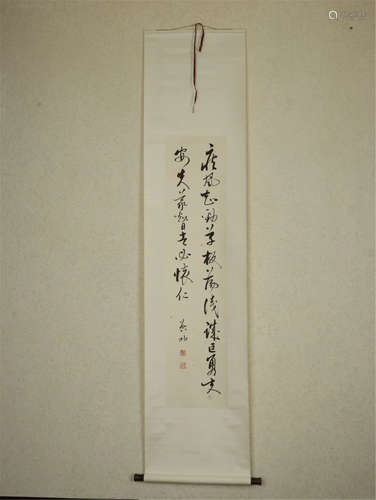 疾风知劲草板荡识诚臣勇夫
安夫义智者必怀仁